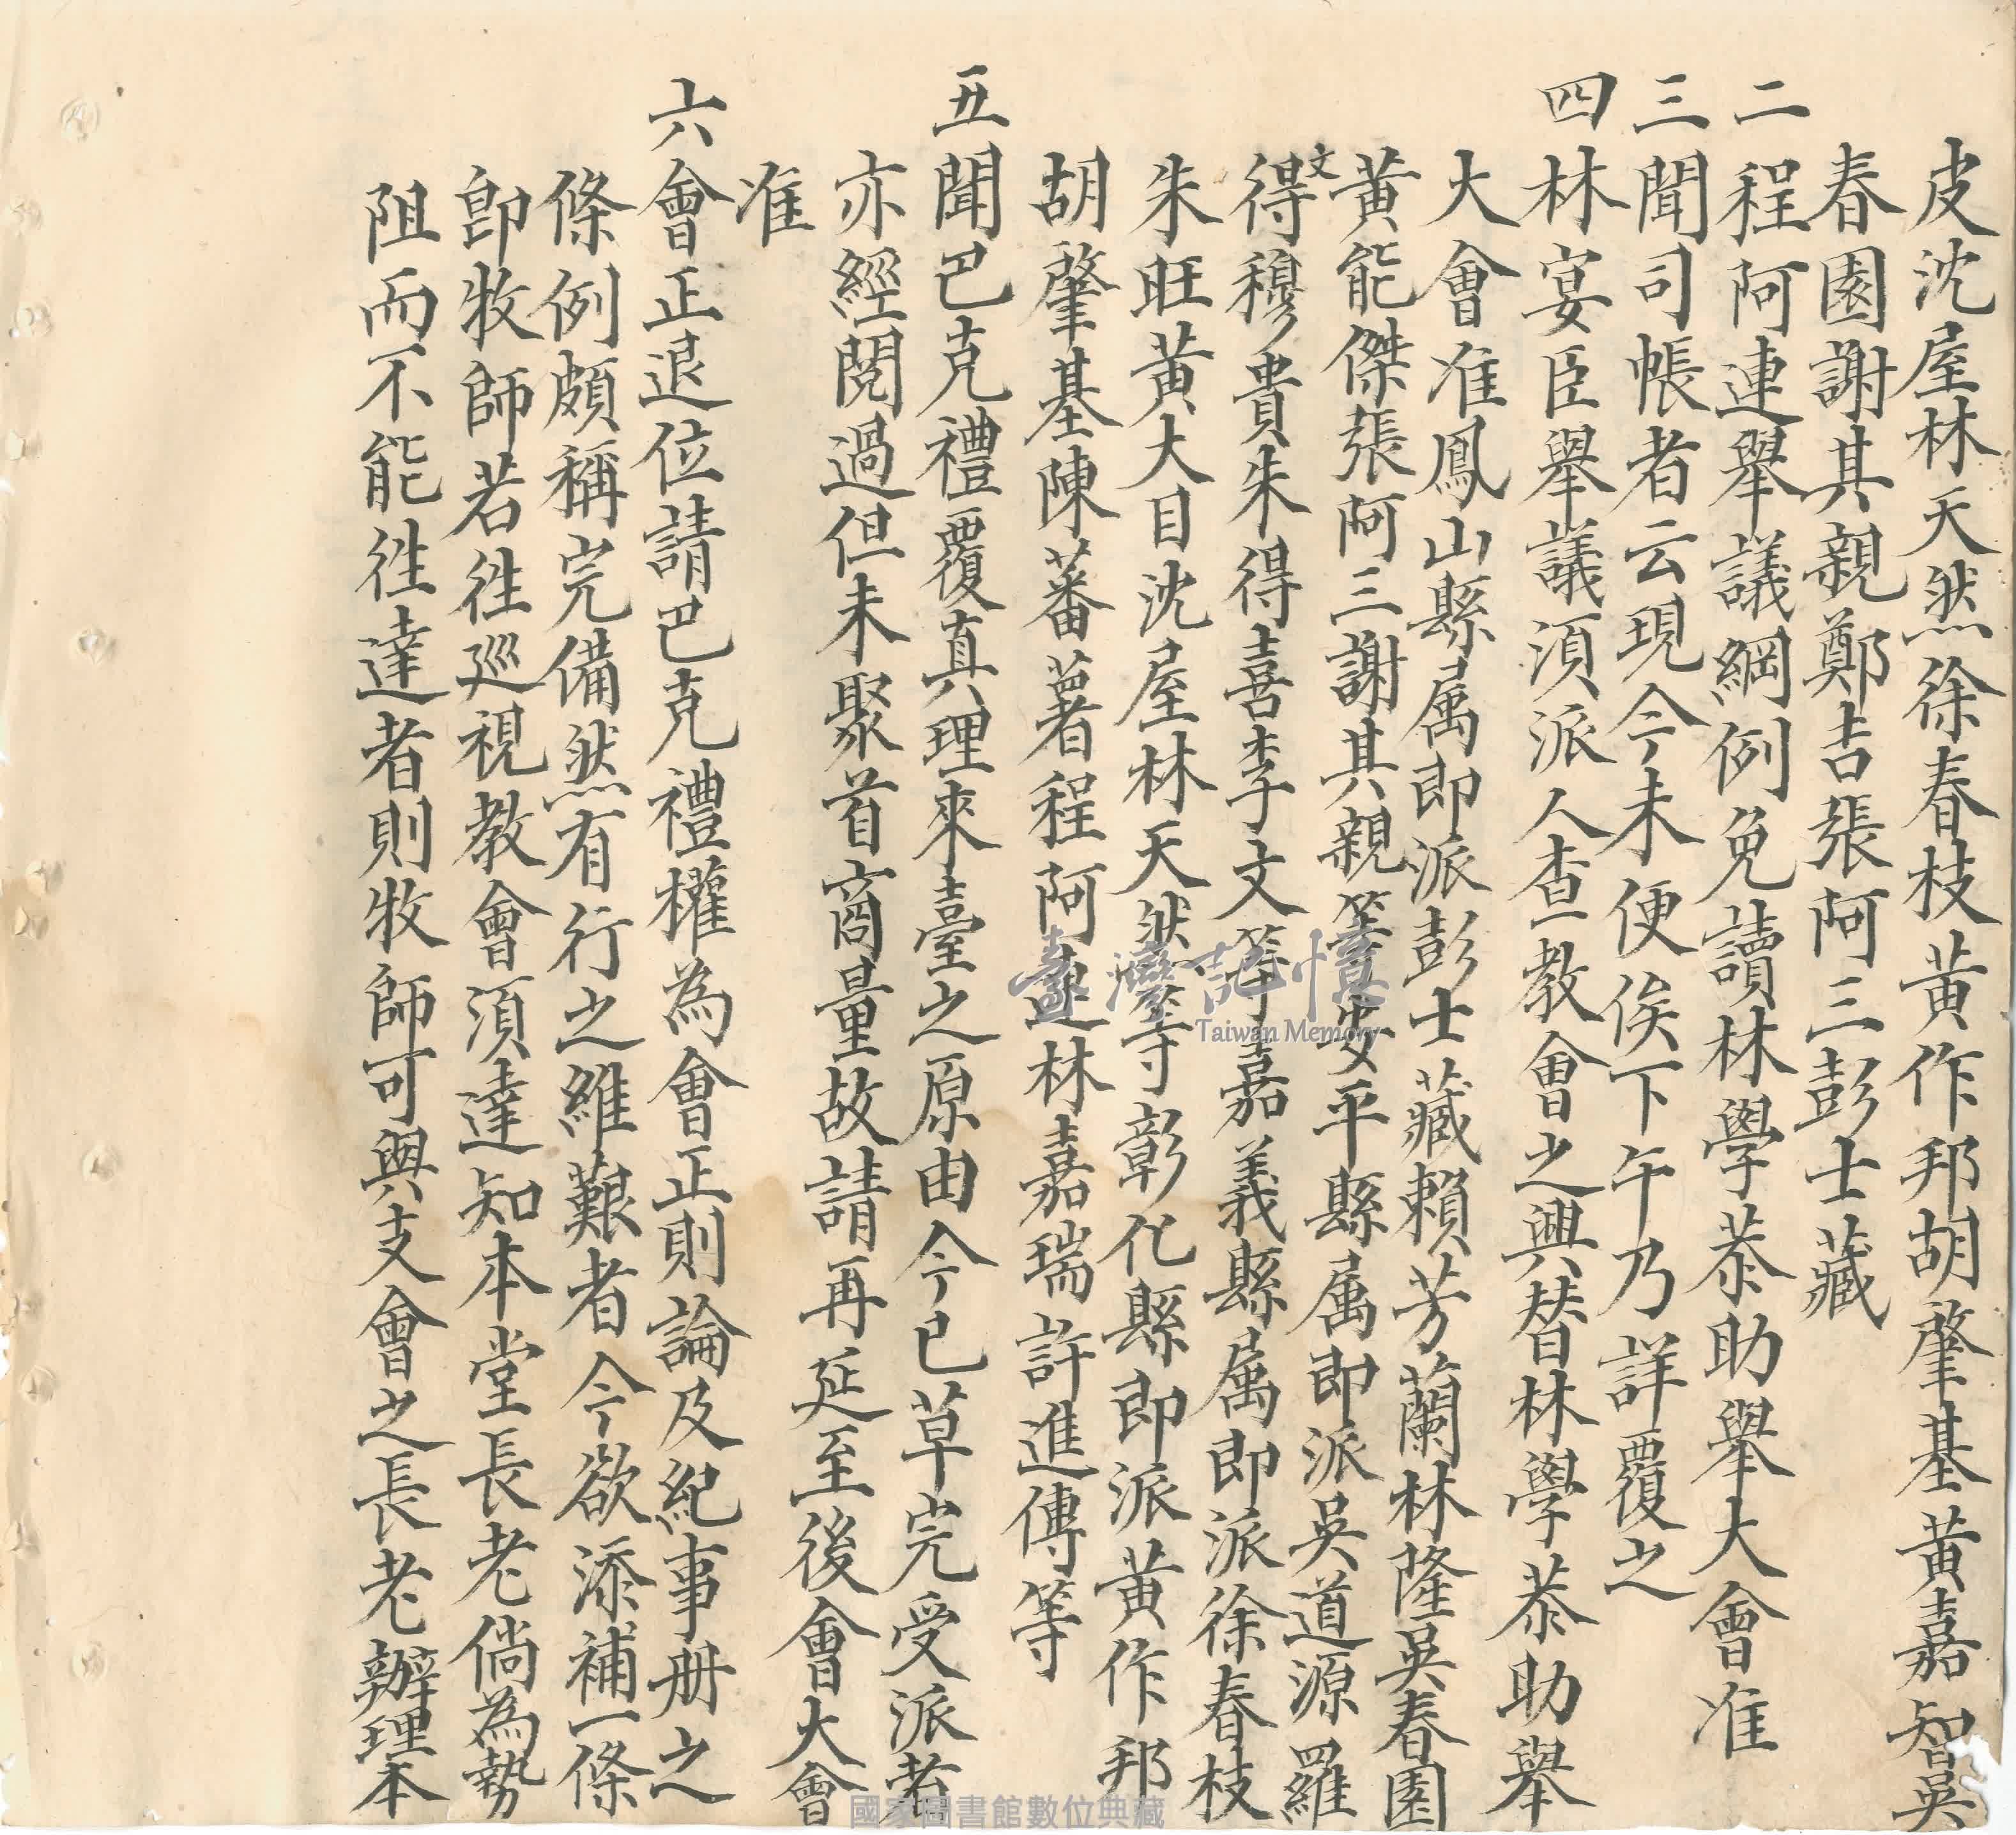 皮沈屋林天然徐春枝黃作邦胡肇基黃嘉智吳
春園謝其親鄭吉張阿三彭士藏
二程阿連舉議綱例免讀林學恭助舉大會准
三聞司帳者云現今未便俟下午乃詳覆之
四林宴臣舉議須派人查教會之興替林學恭助舉
大會准鳳山縣属即派彭士藏賴芳蘭林隆吳春園
黃能傑張阿三謝其親等安平縣属即派吳道源羅
文
得穆貴朱得喜李文等嘉義縣属即派徐春枝
朱旺黃大目沈屋林天然等彰化縣即派黃作邦
胡肇基陳蕃薯程阿連林嘉瑞許進傳等
五聞巴克禮覆真理來臺之原由今已草完受派者
亦經閱過但未聚首商量故請再延至後會大會
准
六會正退位請巴克禮權為會正則論及紀事册之
條例頗稱完備然有行之維艱者今欲添補一條
即牧師若徃巡視教會須達知本堂長老倘為勢
阻而不能徃達者則牧師可與支會之長老辦理本
臺灣記憶
Taiwan Memory
國家圖書館數位典藏